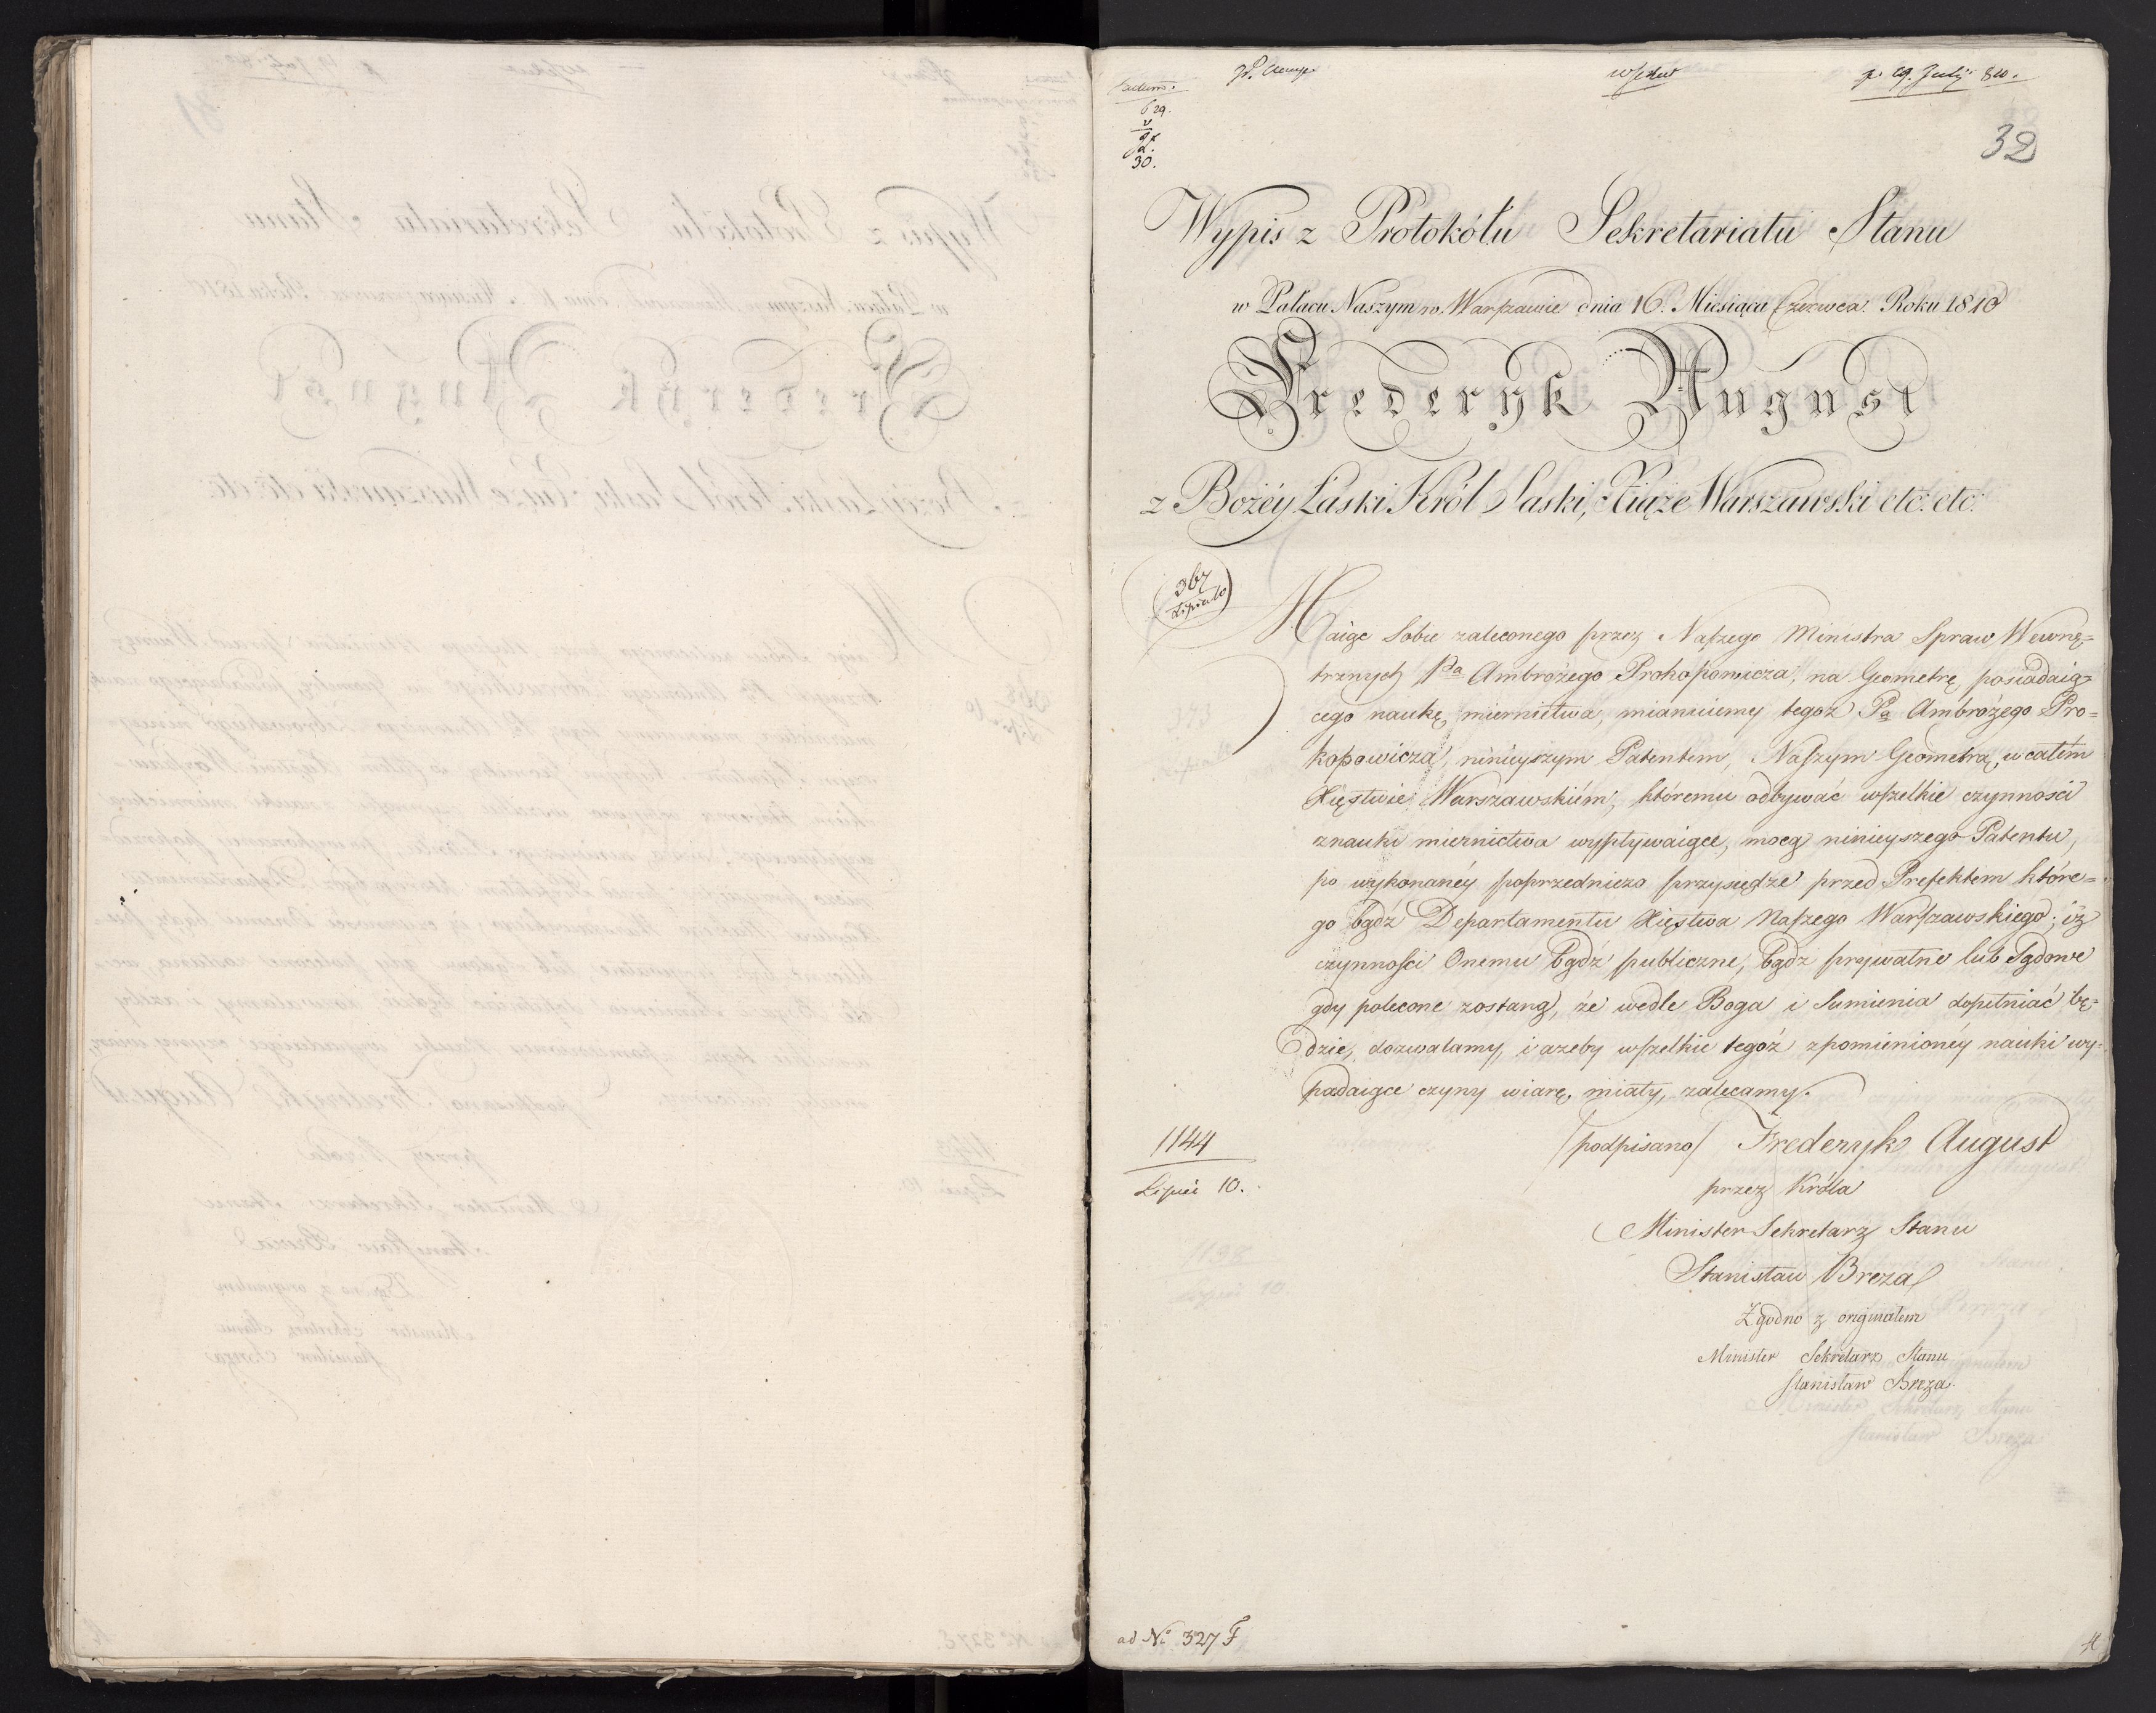 p. 29. July 810.
629.
30.
32
Wypis z Protokółu Sekretariatu Stanu
w Pałacu Naszym w. Warszawie dnia 16. Miesiąca Czerwca. Roku 1810
Frederyk August
z Bożéy Łaski Król Saski, Xiąże Warszawski etc: etc:
367
Lipca 10
Maiąc Sobie zaleconego przez Naszego Ministra Spraw Wewnę=
trznych Pa Ambrożego Prokopowicza, na Geometrę posiadaią=
cego naukę miernictwa, mianuiemy tegoż Pa Ambrożego Pro=
kopowicza, ninieyszym Patentem, Naszym Geometrą, w całém
Xięstwie Warszawskiém, któremu odbywać wszelkie czynności
z nauki miernictwa wypływaiące, mocą ninieyszego Patentu,
po wykonanéy poprzedniczo przysiędze przed Prefektem które=
go bądź Departamentu Xięstwa Naszego Warszawskiego; iż
czynności Onemu bądź publiczne, bądź prywatne lub Sądowe
gdy polecone zostaną, że wedle Boga i Sumienia dopełniać bę=
dzie, dozwalamy, i azeby wszelkie tegoż zpomienionéy nauki wy=
padaiące czyny wiarę miały, zalecamy.
1144
Lipiec 10.
/podpisano/ Frederyk August
przez Króla
Minister Sekretarz Stanu
Stanisław Breza
Zgodno z originałem
Minister Sekretarz Stanu
Stanisław Breza.
ad No 327 F